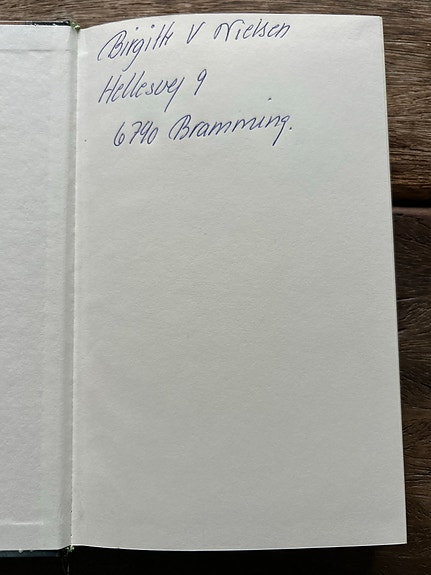 Birgitt V Nielsen
Hellesvej 9
6740 Bramming.